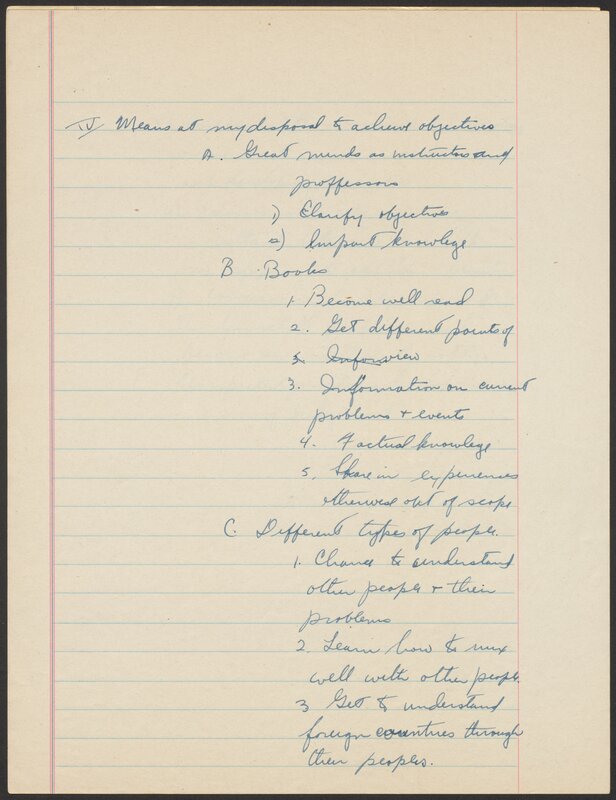 IV Means at my disposal to achieve objectives
A. Great minds as instructors and
proffessors
1) Clarify objectives
2) Impart knowlege
B. Books
1. Become well read
2. Get different points of
3. Infor view
3. Information on current
problems + events
4. Factual knowlege
5. Share in experiences
otherwise out of scope
C. Different types of people.
1. Chance to understand
other people + their
problems
2. Learn how to mix
well with other people
3 Get to understand
foreign countries through
their peoples.